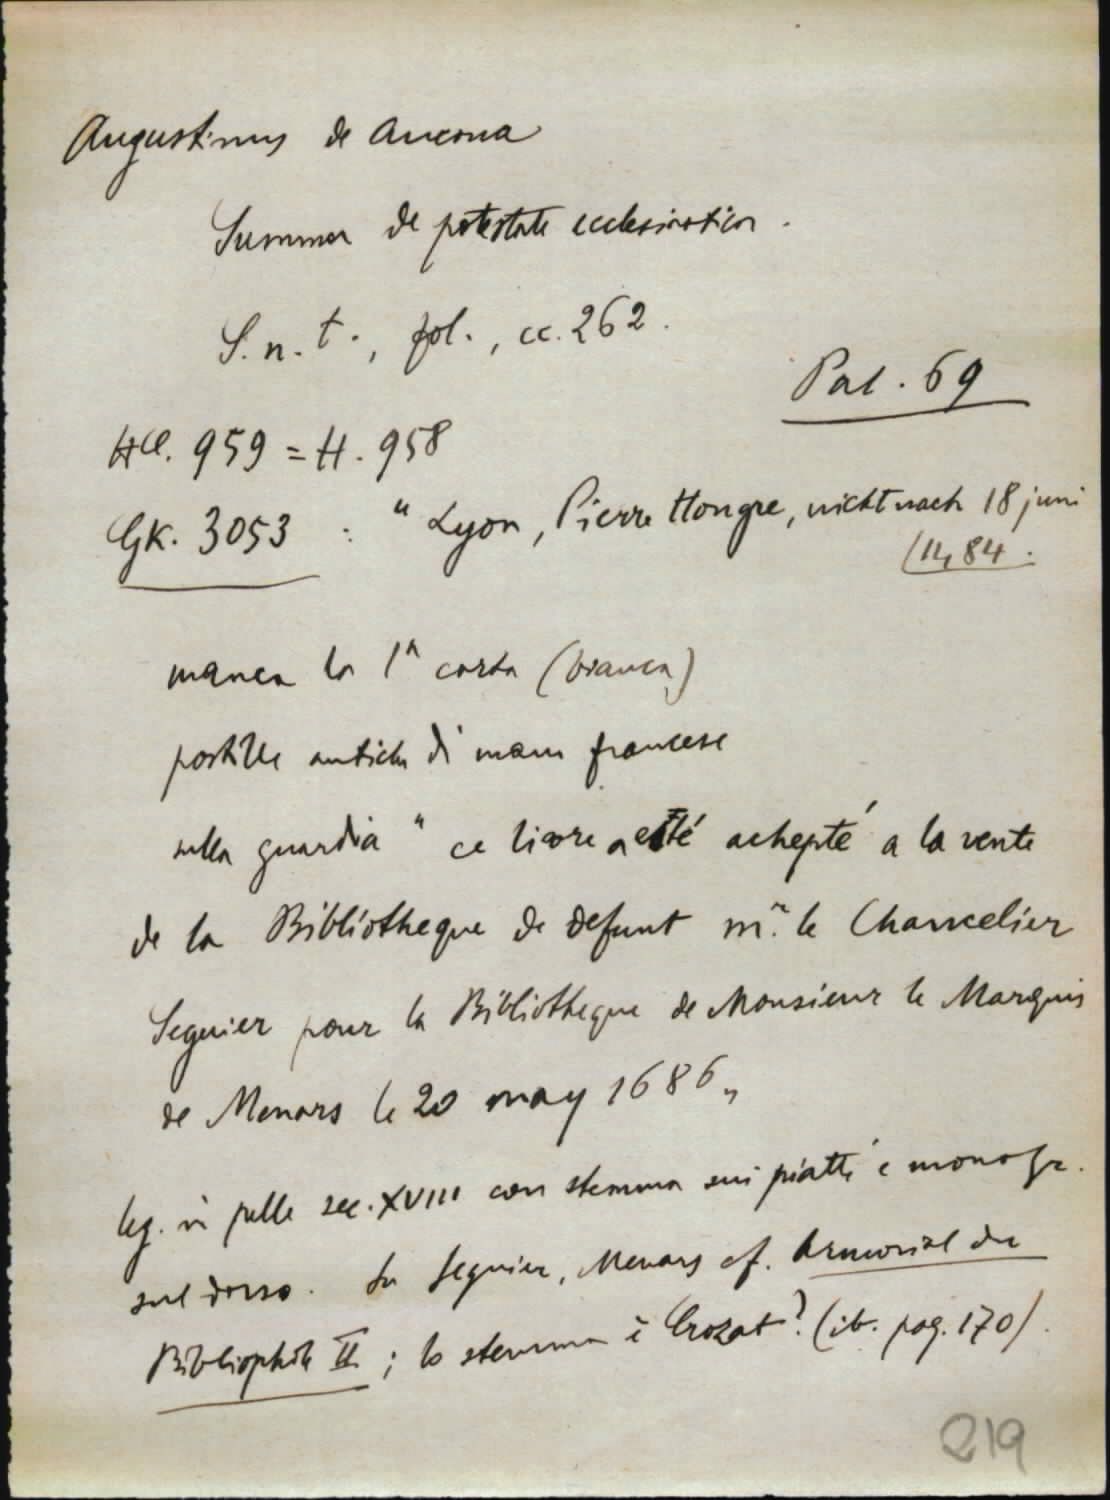 Augustinus de Ancona
Summa de potestate ecclesiastica.
S.n.t., fol., cc. 262.
Pal. 69
HC. 959 = H. 958
GK. 3053 : "Lyon, Pierre Hongre, nicht nach 18 juni
(1484.
manca la 1ª carta (bianca)
postille antiche di mano francese
sulla guardia " ce livre a esté achepté a la vente
de la Bibliotheque de defunt mr. le Chancelier
Seguier pour la Bibliotheque de Monsieur le Marquis
de Menars le 20 may 1686"
leg. in pelle sec. XVIII con stemma sui piatti e monogr.
sul dorso. Su Seguier, Menars cf. Armorial du
Bibliophile II ; lo stemma è Crozat? (ib. pag. 170).
219